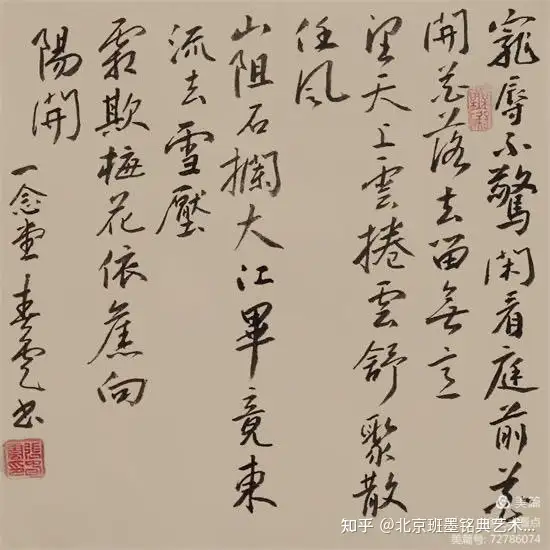 寵辱不驚閑看庭前花
開花落去留無意
望天上雲捲雲舒聚散
任風
山阻石攔大江畢竟東
流去雪壓
霜欺梅花依舊向
陽開
一念堂春雲書
美篇
知乎 @北京班墨铭典艺术...
美篇号: 72786074